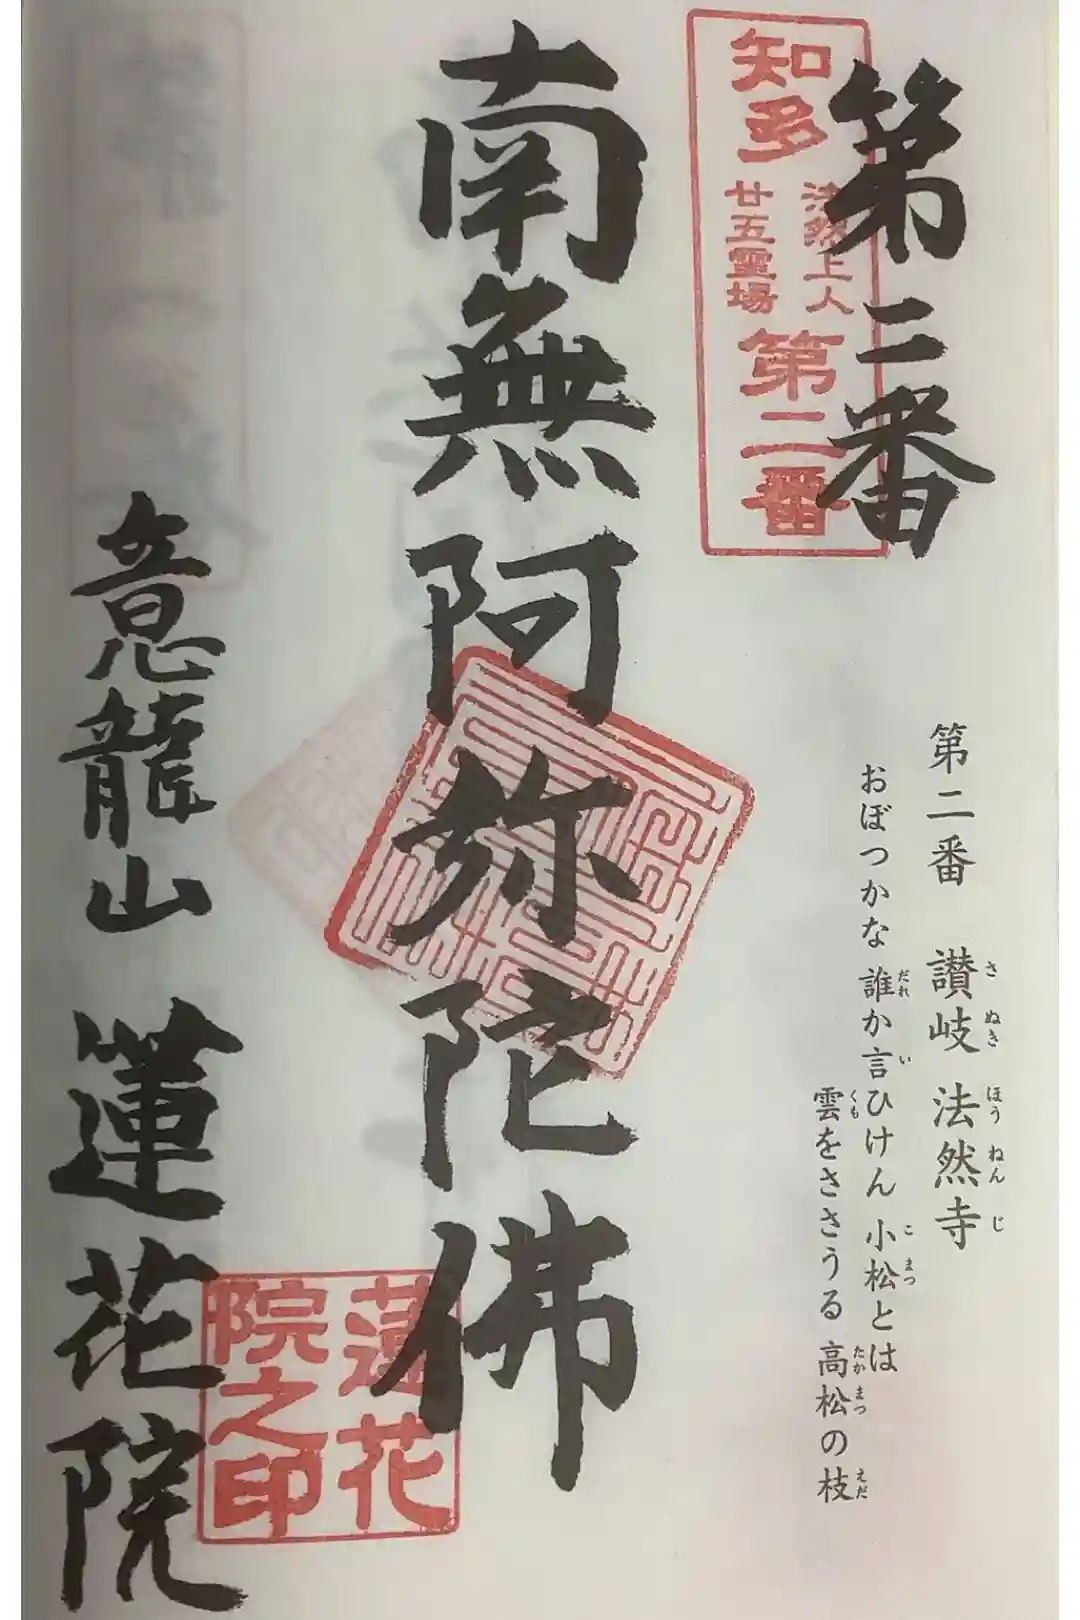 第二番
知多
法然上人
廿五霊場
第二番
第二番 讃岐 法然寺
さぬき ほうねんじ
おぼつかな 誰か言ひけん 小松とは
だれ い こまつ
雲をささうる 高松の枝
くも たかまつ えだ
南無阿弥陀佛
蓮花
院之印
意龍山 蓮花院